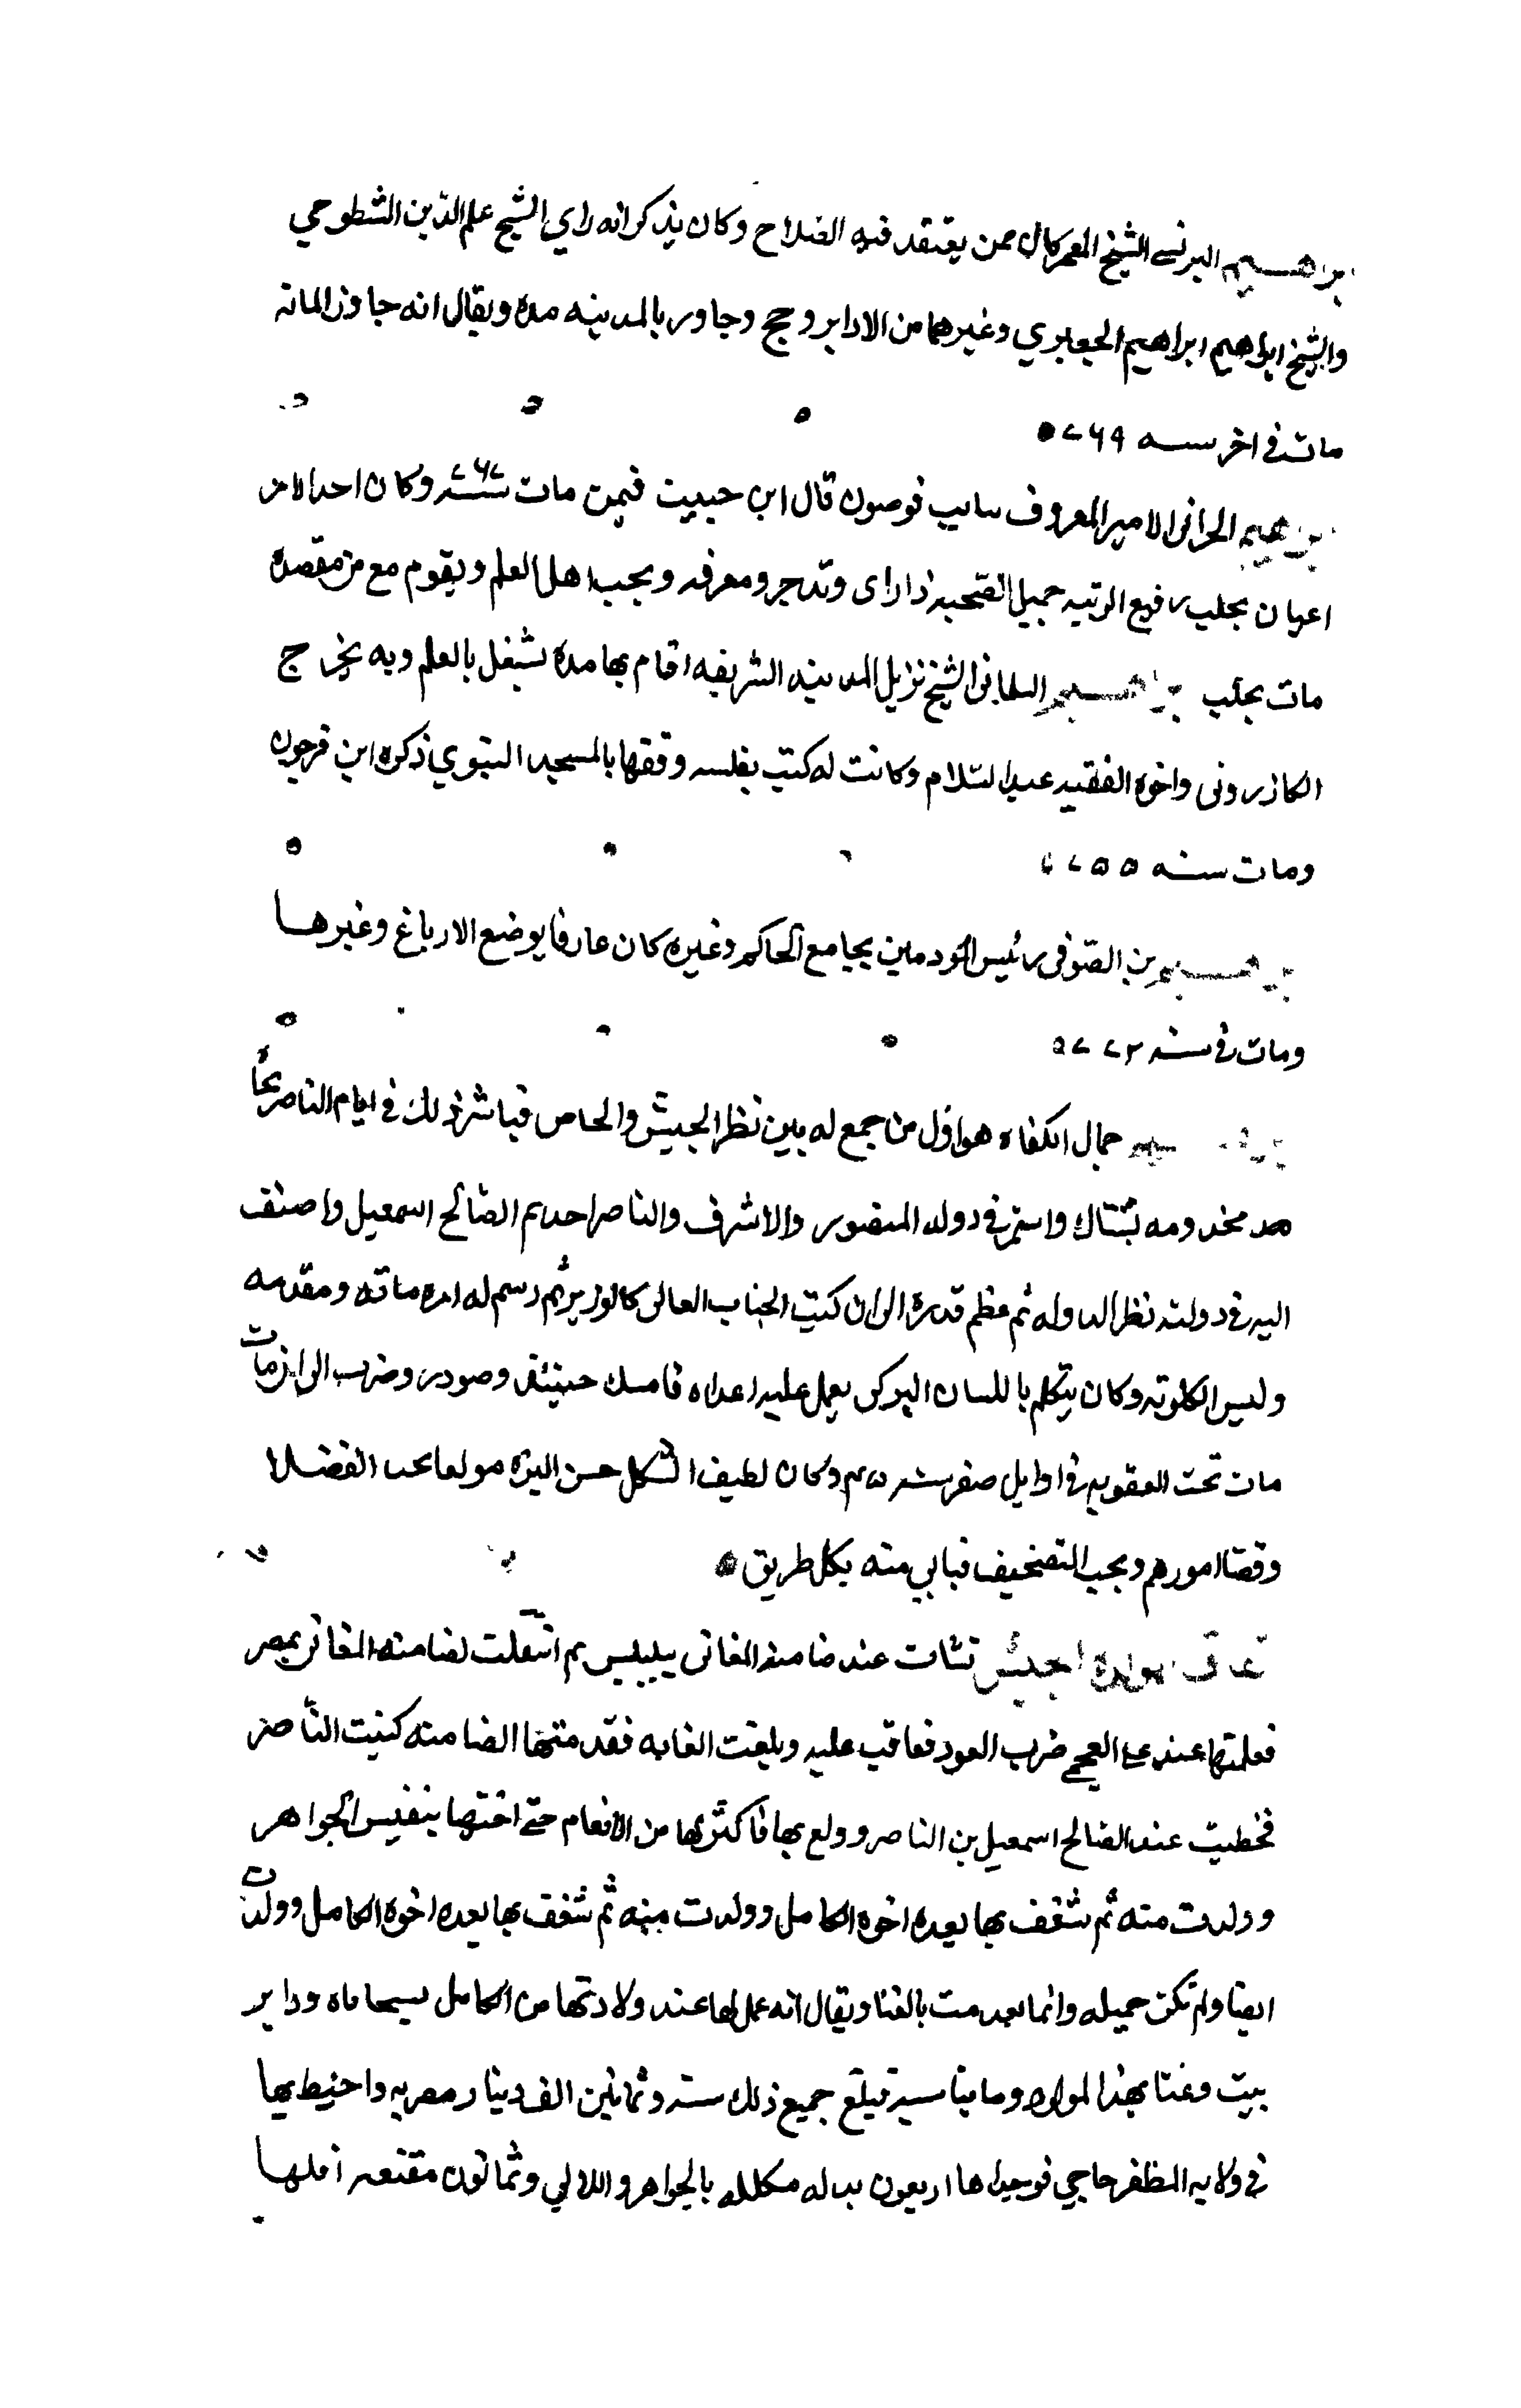 ابراهيم البرنسي الشيخ المعمر كان ممن يعتقد فيه الصلاح وكان يذكر انه راي الشيخ علم الدين الشطوحي
والشيخ ابراهيم ابراهيم الجعبري وغيرهما من الاكابر وحج وجاور بالمدينه مده ويقال انه جاوز المائه
مات في اخر سنه ٧٦٩
ابراهيم الحراني الامير المعروف بنايب قوصون قال ابن حبيب فيمن مات سنة ٧٦٧ وكان احد الامر
اعيان بحلب رفيع الرتبه جميل الصحبه ذا راى وتدبر ومعرفه ويحب اهل العلم ويقوم مع من يقصده
مات بحلب ابراهيم الشيخ نزيل المدينه الشريفه اقام بها مدة يشغل بالعلم وبه تخرج
الكازروني واخوه الفقيه عبد السلام وكانت له كتب نفيسه وقفها بالمسجد النبوي ذكره ابن فرحون
ومات سنه ٧٥٥
ابراهيم بن الصوفي رئيس المؤدنين بجامع الحاكم وغيره كان عارفا بوضع الارباع وغيرها
ومات في سنه ٧٧٢
ابراهيم جمال الكفاه هو اول من جمع له بين نظر الجيش والخاص فباشر ذلك في ايام الناصر
بعد مخدومه بشتاك واستمر في دوله المنصور والاشرف والناصر احمد ثم الصالح اسمعيل واضيف
اليه في دولته نظر الدوله ثم عظم قدره الى ان كتب الجناب العالي كالوزير ثم رسم له امره مائه ومقدمه
ولبس الكلوته وكان يتكلم باللسان التركي يعمل عليه اعداه فامسك حينئذ وصودر وضرب الى ان مات
مات تحت العقوبه في اوايل صفر سنة وكان لطيف الشكل حسن البزه مولعا بحب الفضلا
وقضا امورهم ويحب التصحيف فياتي منه بكل طريق
نشات عند ضامنه المغاني ببلبيس ثم انتقلت لضامنه المغاني بمصر
فعلمتها عند علي العجمي ضرب العود فعاقب عليه وبلغت الغايه فقدمتها الضامنه لبيت الناصر
فحظيت عند الصالح اسمعيل بن الناصر وولع بها فاكثر لها من الانعام حتى اختصها بنفيس الجواهر
وولدت منه ثم شغف بها بعده اخوه الكامل وولدت منه ثم شغف بها بعده اخوه الكامل وولدت
ايضا ولم تكن جميله وانما تقدمت بالغنا ويقال انه عمل لها عند ولادتها من الكامل وداير
بيت وغشا بهذا المولود وما يناسبه فبلغ جميع ذلك سته وثمانين الف دينار مصريه واحيط بها
في ولايه المظفر حاجي فوجد لها اربعون بدله مكلله بالجواهر واللالي وثمانون مقنعه اقلها